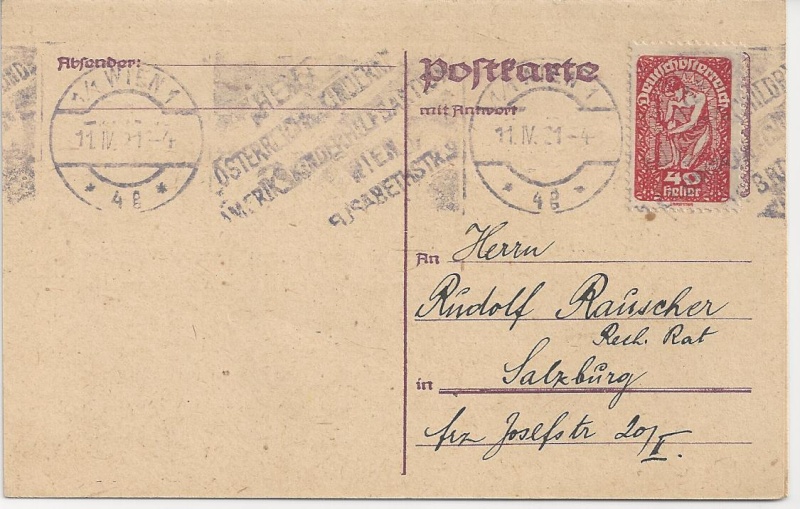 Absender:
1/1 WIEN 1
11.IV.21-4
* 4e *
HELFT
ÖSTERR. KINDERN
AMERIK. KINDERHILFSAKTION
WIEN
ELISABETHSTR. 9
Postkarte
mit Antwort
1/1 WIEN 1
11.IV.21-4
* 4e *
Deutschösterreich
40
Heller
An Herrn
Rudolf Rauscher
Rech. Rat
in Salzburg
frz Josefstr 20/II.